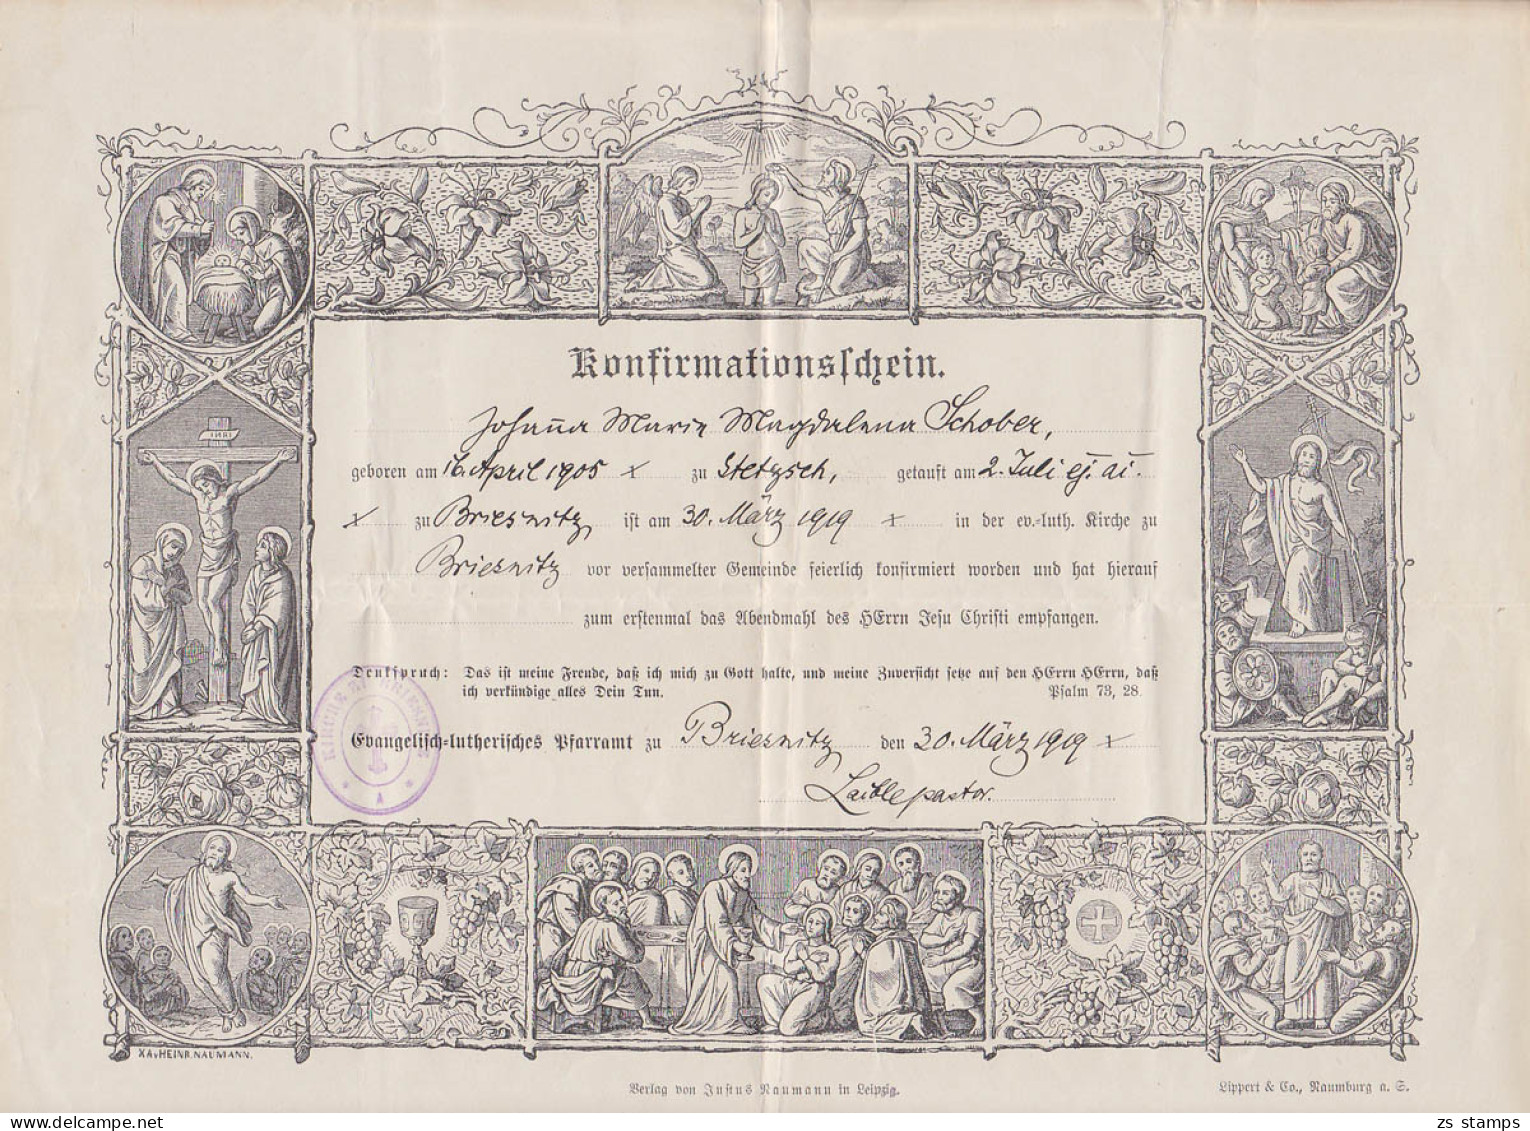 INRI
Konfirmationsschein.
Johanna Marie Magdalena Schober,
geboren am 16. April 1905 x zu Stetzsch, getauft am 2. Juli ej. ai.
x zu Briesnitz ist am 30. März 1919 x in der ev.-luth. Kirche zu
Briesnitz vor versammelter Gemeinde feierlich konfirmiert worden und hat hierauf
zum erstenmal das Abendmahl des HErrn Jesu Christi empfangen.
Denkspruch: Das ist meine Freude, daß ich mich zu Gott halte, und meine Zuversicht setze auf den HErrn HErrn, daß
ich verkündige alles Dein Tun. Psalm 73, 28.
KIRCHE ZU BRIESNITZ
A
Evangelisch-lutherisches Pfarramt zu Briesnitz den 30. März 1919 x
Laible pastor.
XAv HEINR. NAUMANN.
Verlag von Justus Naumann in Leipzig.
Lippert & Co., Naumburg a. S.
zs stamps